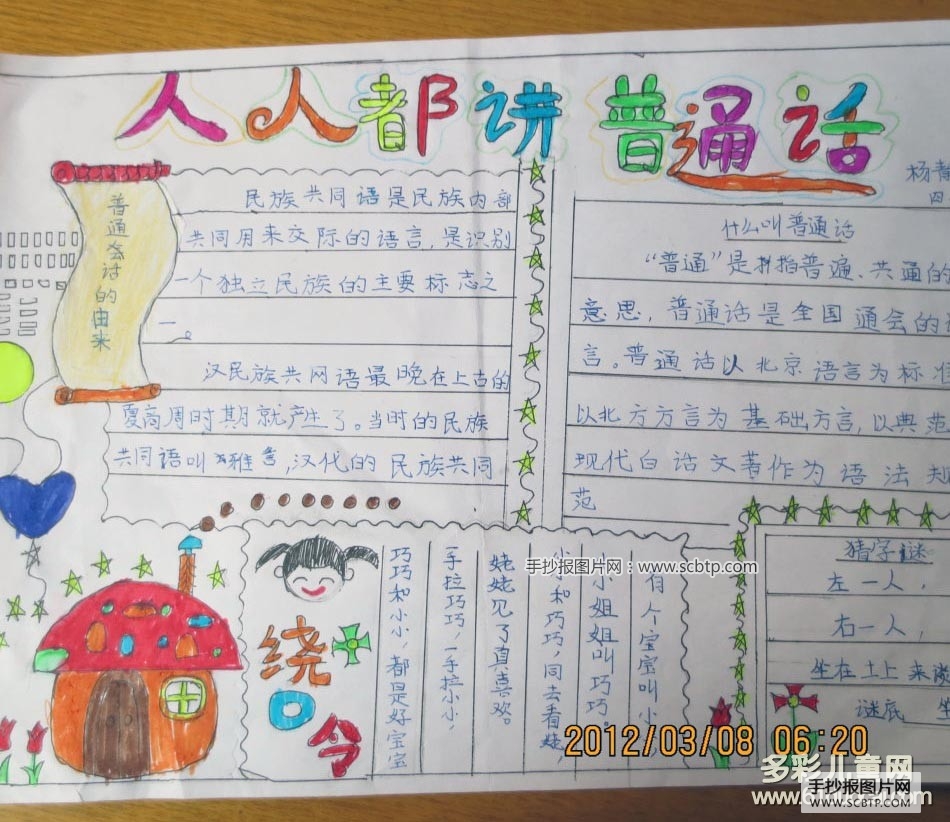 人人都讲普通话
杨
四
普通会话的由来
民族共同语是民族内部
共同用来交际的语言，是识别
一个独立民族的主要标志之
一。
汉民族共网语最晚在上古的
夏商周时期就产生了。当时的民族
共同语叫雅言，汉代的民族共同
什么叫普通话
“普通”是指普遍、共通的
意思，普通话是全国通会的
言。普通话以北京语言为标准
以北方方言为基础方言，以典范
现代白话文著作为语法规
范
绕口令
有个宝宝叫小
小姐姐叫巧巧。
小和巧巧，同去看姥
姥姥见了真喜欢。
一手拉巧巧，一手拉小小，
巧巧和小小，都是好宝宝
猜字谜
左一人，
右一人，
坐在土上来谈
谜底 坐
手抄报图片网：www.scbtp.com
2012/03/08 06:20
多彩儿童网
手抄报图片网
WWW.SCBTP.COM